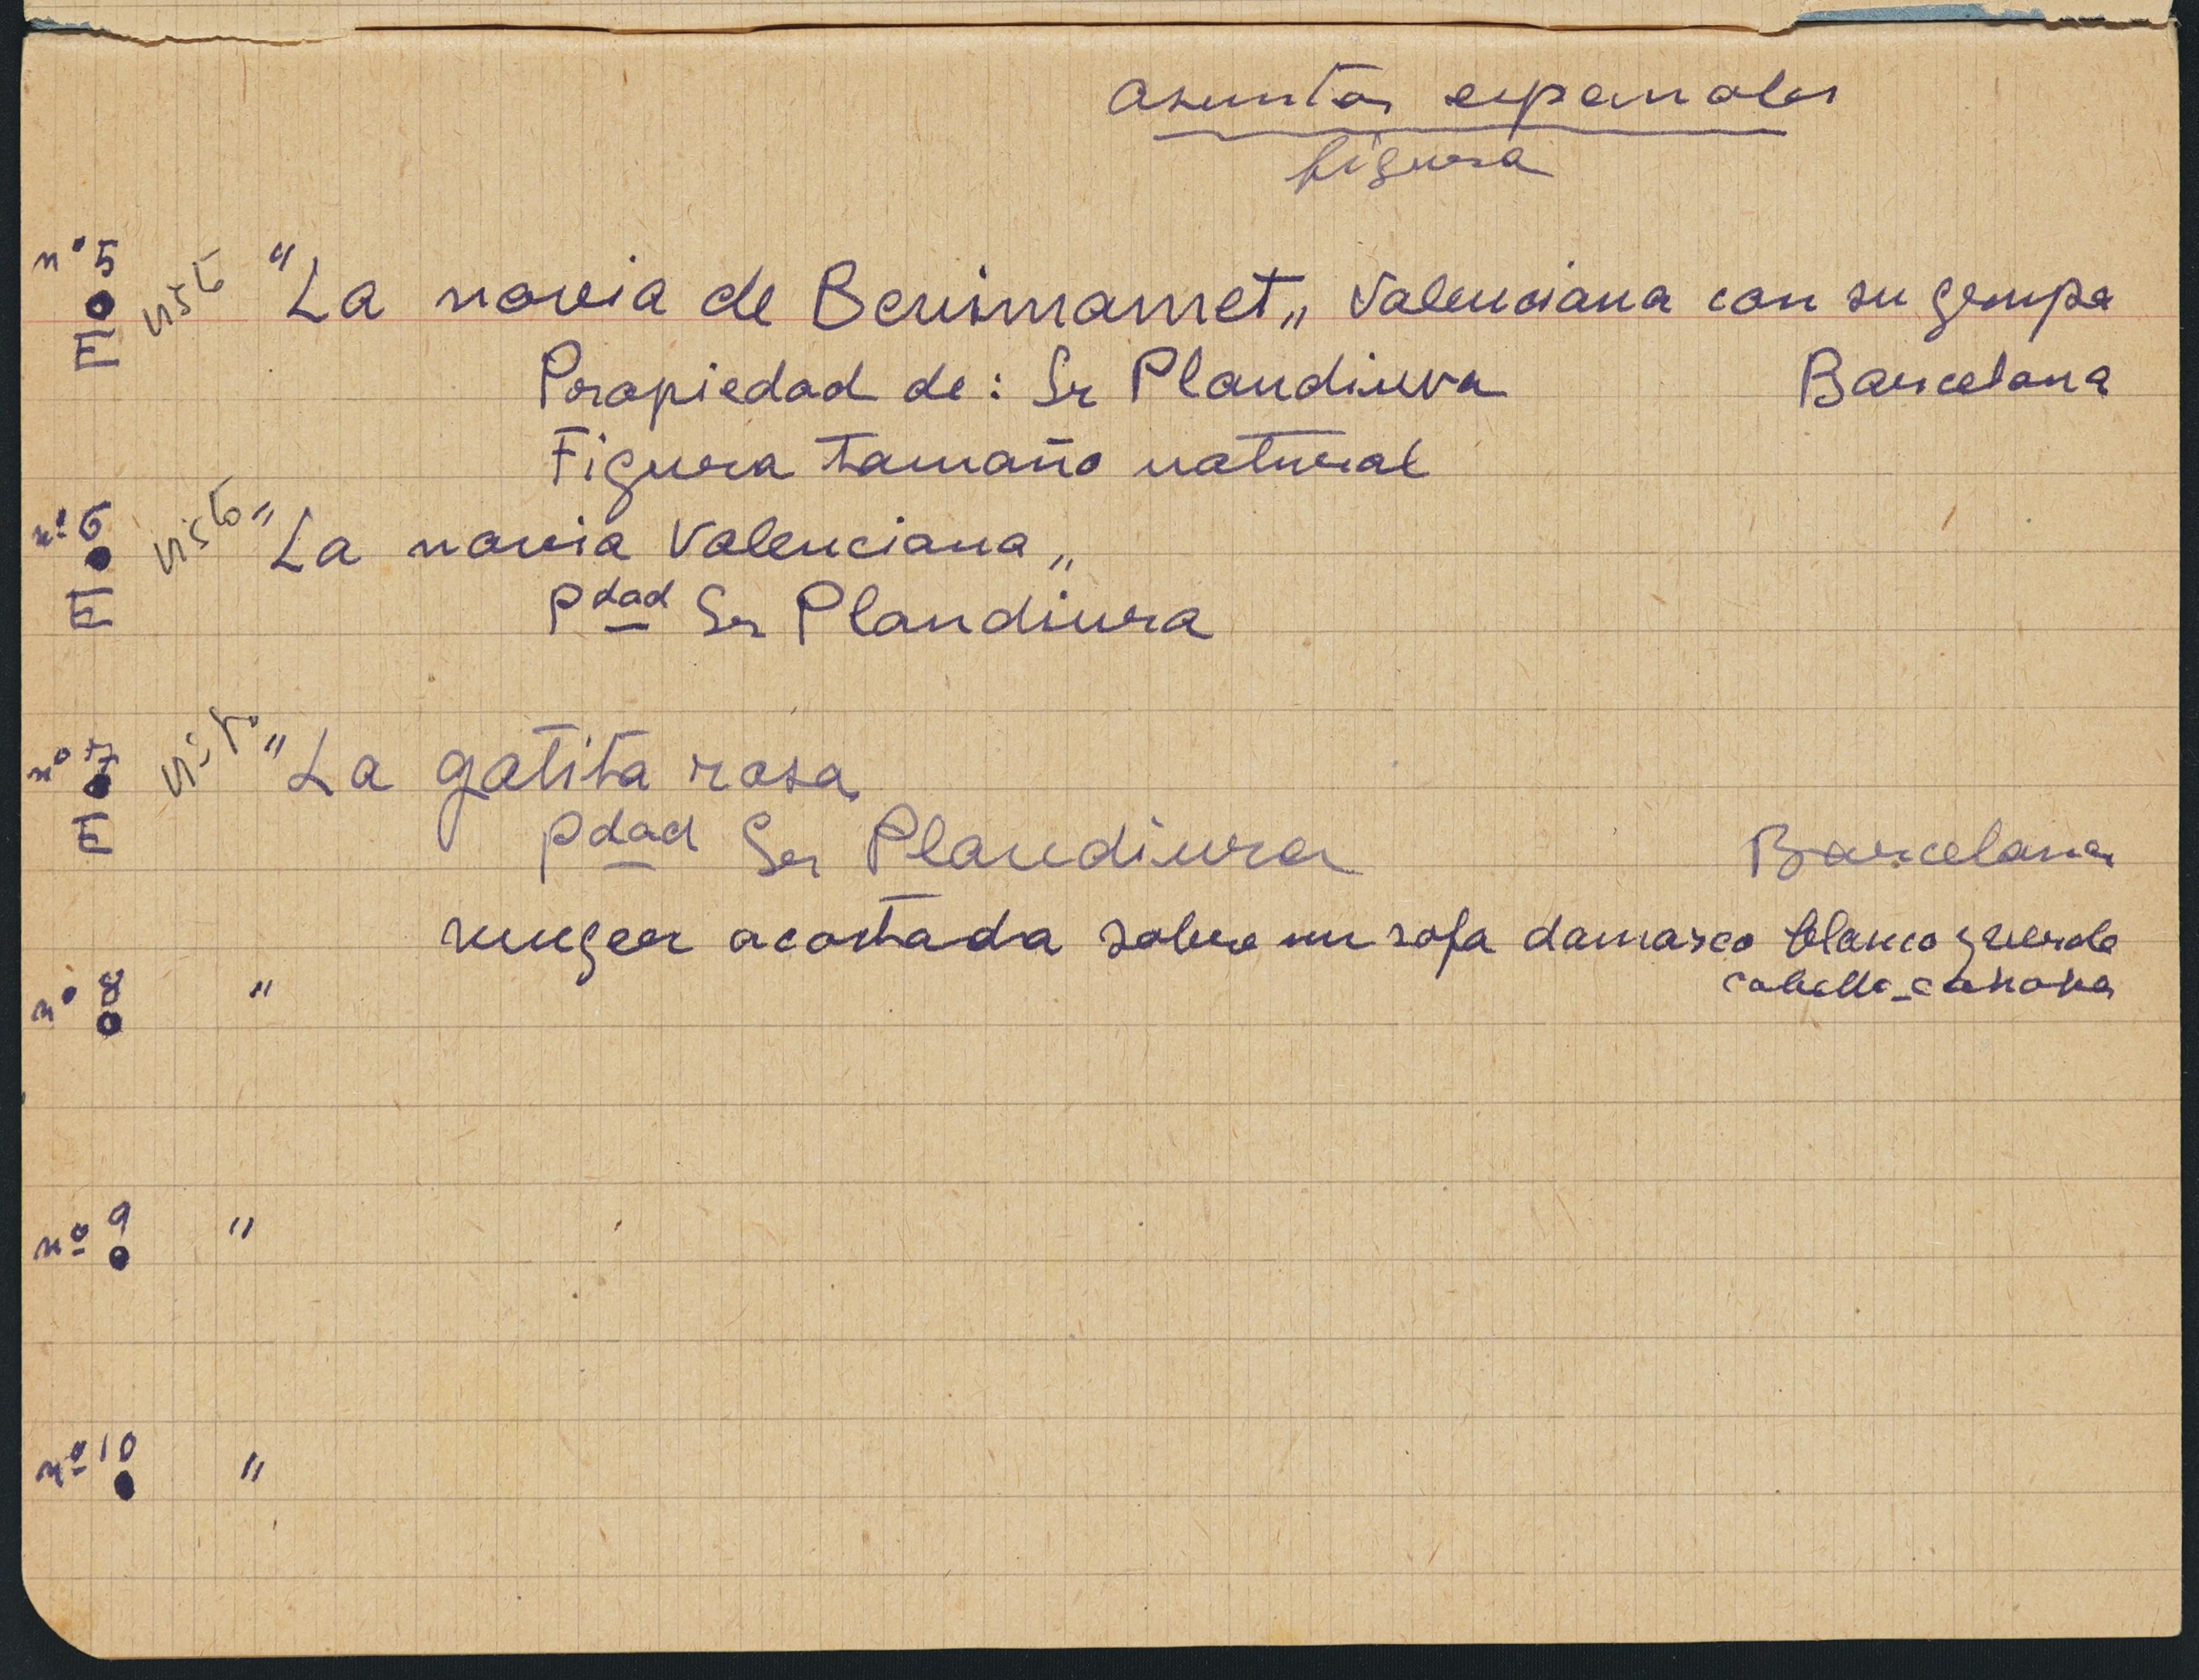 asuntos espanoles
figura
nº 5 visto "La novia de Benimamet" Valenciana con su grupa
E
Propiedad de: Sr Plandiura Barcelona
Figura tamaño natural
nº 6 visto "La novia Valenciana"
E
Pdad Sr Plandiura
nº 7 visto "La gatita rosa
E
Pdad Sr Plandiura Barcelona
muger acostada sobre un sofa damasco blanco y verde
nº 8 "
nº 9 "
nº 10 "